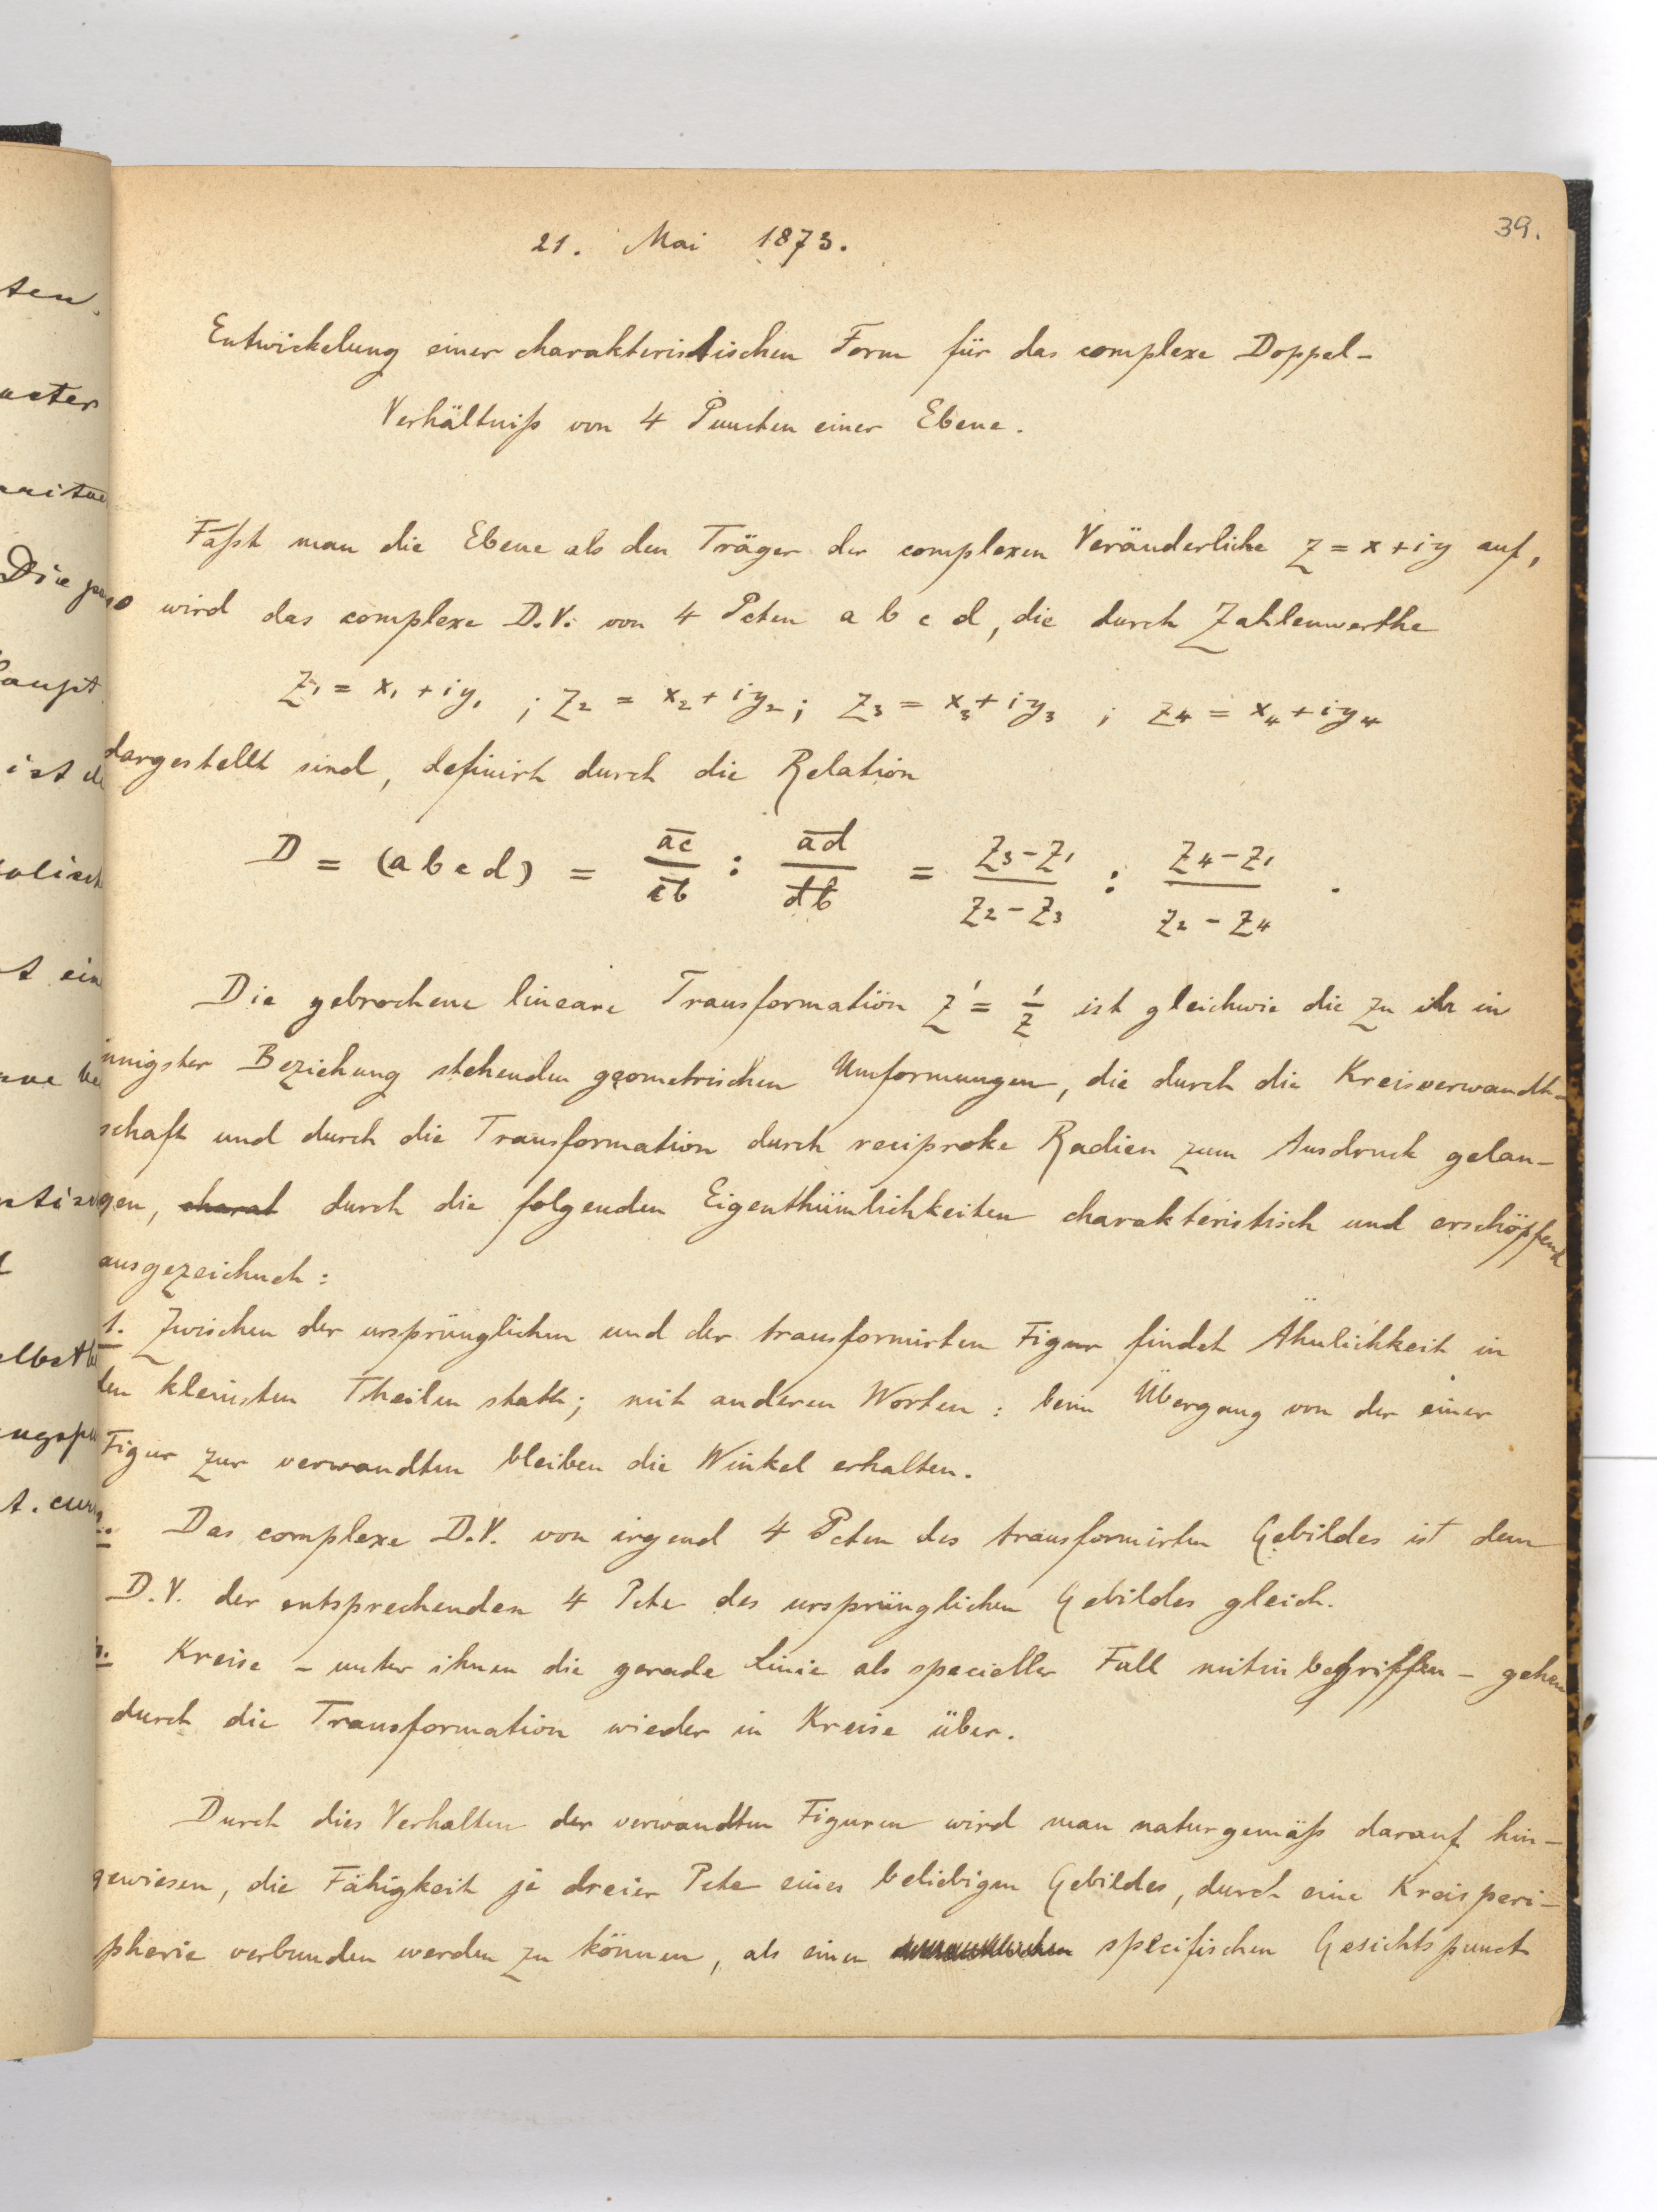 39.
21. Mai 1873.
Entwickelung einer charakteristischen Form für das complexe Doppel-
Verhältniß von 4 Puncten einer Ebene.
Faßt man die Ebene als den Träger der complexen Veränderliche z = x + iy auf,
so wird das complexe D.V. von 4 Pcten a b c d, die durch Zahlenwerthe
z₁ = x₁ + iy₁ ; z₂ = x₂ + iy₂ ; z₃ = x₃ + iy₃ ; z₄ = x₄ + iy₄
dargestellt sind, definirt durch die Relation
D = (a b c d) = ac/cb : ad/db = (z₃ - z₁)/(z₂ - z₃) : (z₄ - z₁)/(z₂ - z₄) .
Die gebrochene lineare Transformation z' = 1/z ist gleichwie die zu ihr in
innigster Beziehung stehenden geometrischen Umformungen, die durch die Kreisverwandt-
schaft und durch die Transformation durch reciproke Radien zum Ausdruck gelan-
gen, charat durch die folgenden Eigenthümlichkeiten charakteristisch und erschöpfend
ausgezeichnet :
1. Zwischen der ursprünglichen und der transformirten Figur findet Ähnlichkeit in
den kleinsten Theilen statt; mit anderen Worten : beim Übergang von der einer
Figur zur verwandten bleiben die Winkel erhalten.
2. Das complexe D.V. von irgend 4 Pcten des transformirten Gebildes ist dem
D.V. der entsprechenden 4 Pcte des ursprünglichen Gebildes gleich.
3. Kreise - unter ihnen die gerade Linie als specieller Fall mitinbegriffen - gehen
durch die Transformation wieder in Kreise über.
Durch dies Verhalten der verwandten Figuren wird man naturgemäß darauf hin-
gewiesen, die Fähigkeit je dreier Pcte eines beliebigen Gebildes, durch eine Kreisperi-
pherie verbunden werden zu können, als einen specifischen Gesichtspunct